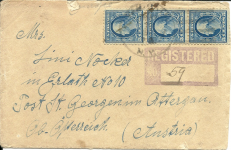 Mrs.
Lini Nocker
in Erlath No 10
Post St. Georgen im Ottergau
Ob. Österreich (Austria)
REGISTERED
59